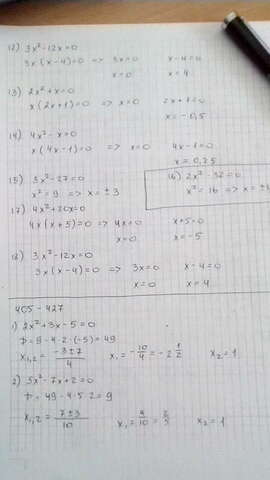 12) 3x²-12x=0
3x(x-4)=0 => 3x=0 x-4=0
x=0 x=4
13) 2x²+x=0
x(2x+1)=0 => x=0 2x+1=0
x=-0,5
14) 4x²-x=0
x(4x-1)=0 => x=0 4x-1=0
x=0,25
15) 3x²-27=0
x²=9 => x=±3
16) 2x²-32=0
x²=16 => x=±
17) 4x²+20x=0
4x(x+5)=0 => 4x=0 x+5=0
x=0 x=-5
18) 3x²-12x=0
3x(x-4)=0 => 3x=0 x-4=0
x=0 x=4
405-427
1) 2x²+3x-5=0
D=9-4·2·(-5)=49
x₁,₂=(-3±7)/4 x₁=-10/4=-2 1/2 x₂=1
2) 5x²-7x+2=0
D=49-4·5·2=9
x₁,₂=(7±3)/10 x₁=4/10=2/5 x₂=1